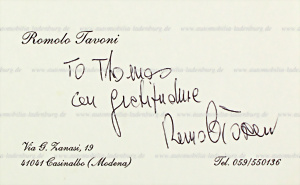 www.autodelta-ladenburg.de
Romolo Tavoni
To Thomas
con gratitudine
Romolo Tavoni
Via G. Zanasi, 19
41041 Casinalbo (Modena)
Tel. 059/550136